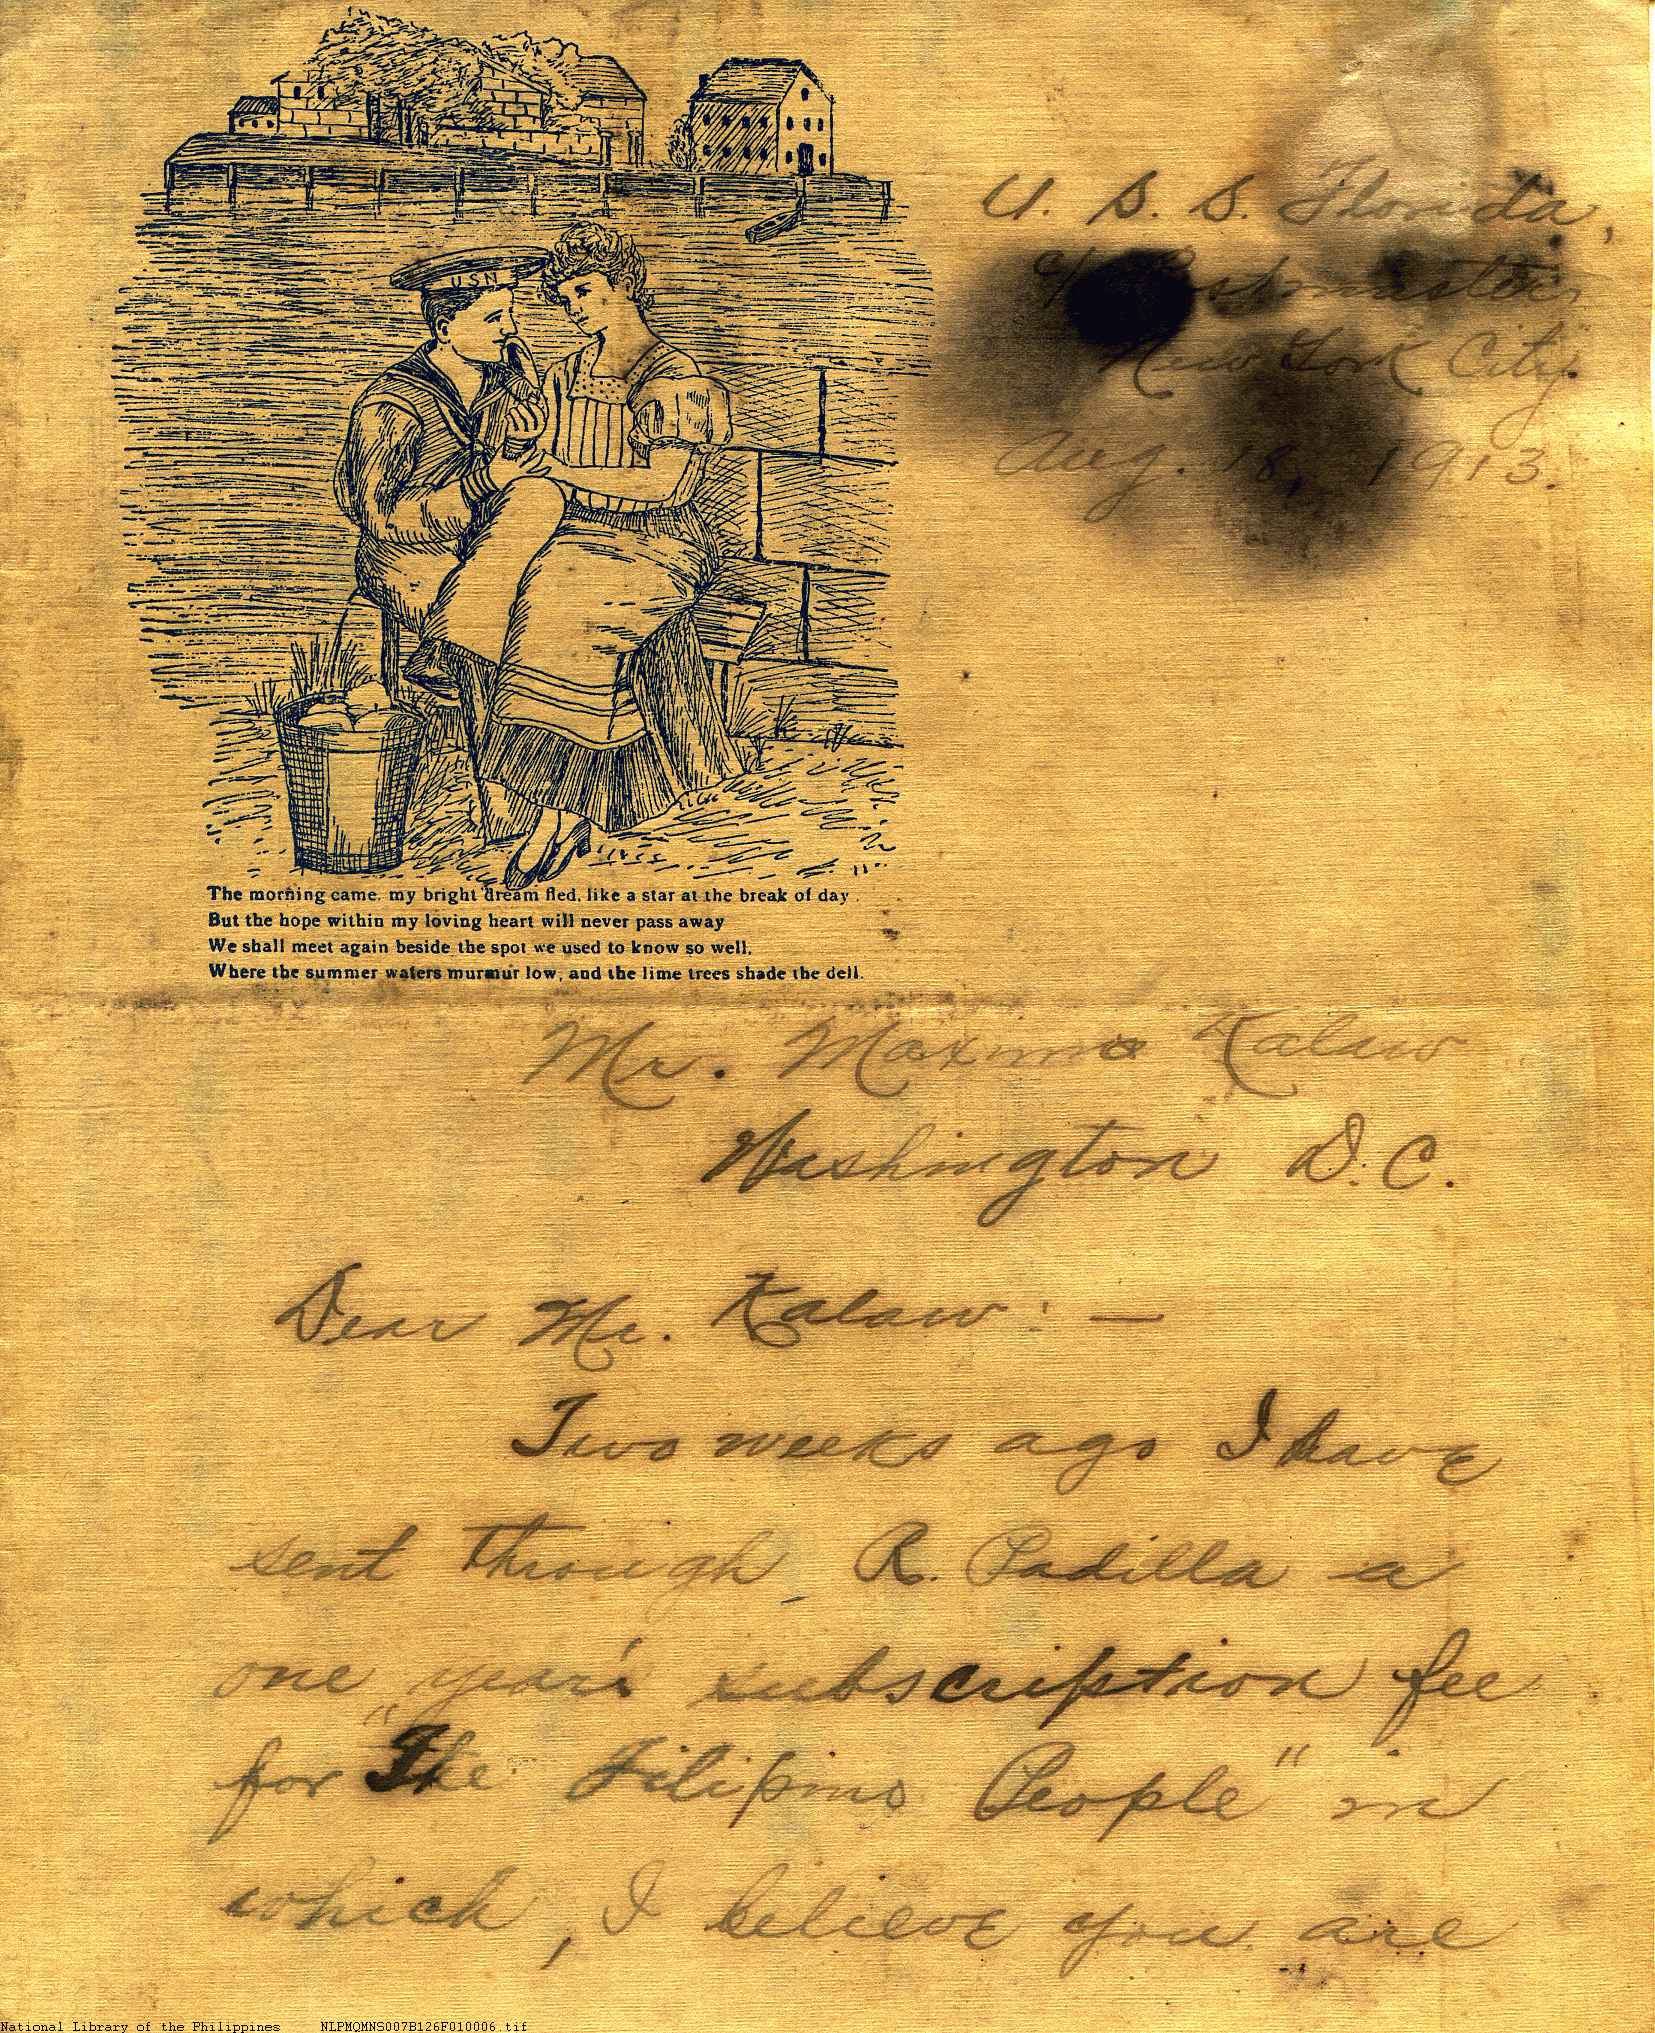 U. S. S. Florida,
c/o Postmaster,
New York City.
Aug. 18, 1913.
USN
The morning came, my bright dream fled, like a star at the break of day.
But the hope within my loving heart will never pass away
We shall meet again beside the spot we used to know so well,
Where the summer waters murmur low, and the lime trees shade the dell.
Mr. Maximo Kalaw
Washington D.C.
Dear Mr. Kalaw: —
Two weeks ago I have
sent through R. Padilla a
one year's subscription fee
for "The Filipino People" in
which, I believe you are
National Library of the Philippines NLPMQMNS007B126F010006.tif